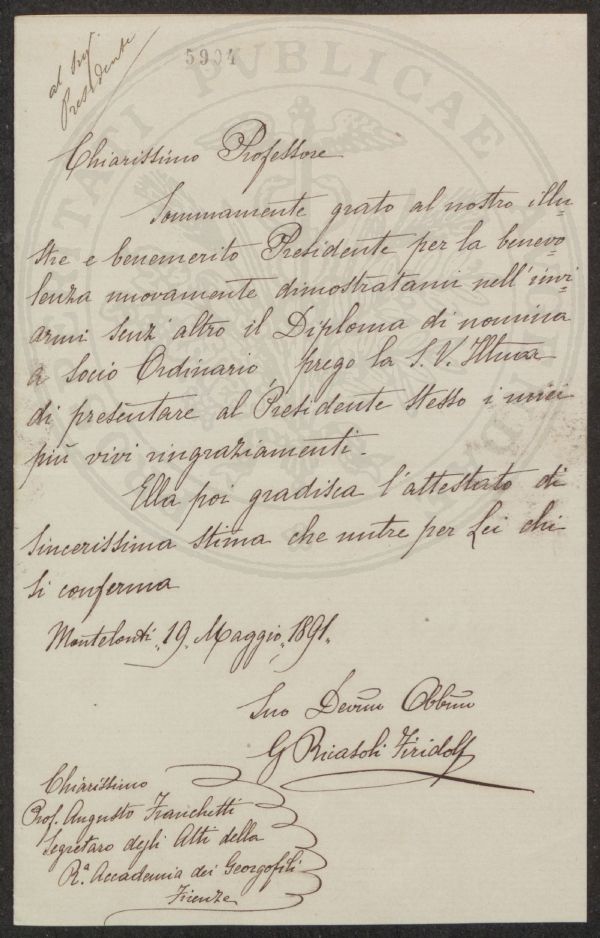 al Sig.r
Presidente
5904
PUBLICAE
Chiarissimo Professore
Sommamente grato al nostro illu-
stre e benemerito Presidente per la benevo-
lenza nuovamente dimostratami nell'invi-
armi senz'altro il Diploma di nomina
a Socio Ordinario, prego la S. V. Illma
di presentare al Presidente stesso i miei
più vivi ringraziamenti.
Ella poi gradisca l'attestato di
sincerissima stima che nutre per Lei chi
si conferma
19. Maggio, 1891.
Suo Devmo Obbmo
G Ricasoli Firidolfi
Chiarissimo
Prof. Augusto Franchetti
Segretaro degli Atti della
R.a Accademia dei Georgofili
Firenze